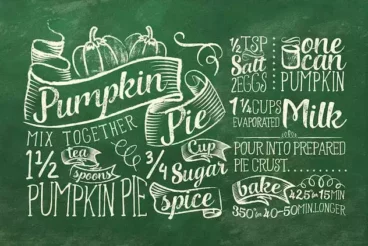 Pumpkin
Pie
MIX TOGETHER
1 1/2 tea spoons
PUMPKIN PIE
spice
3/4 Cup
Sugar
1/2 TSP
Salt
2 EGGS
one
can
PUMPKIN
1 1/4 CUPS
EVAPORATED
Milk
POUR INTO PREPARED
PIE CRUST
bake 425° for 15 MIN
350° for 40-50 MIN. LONGER